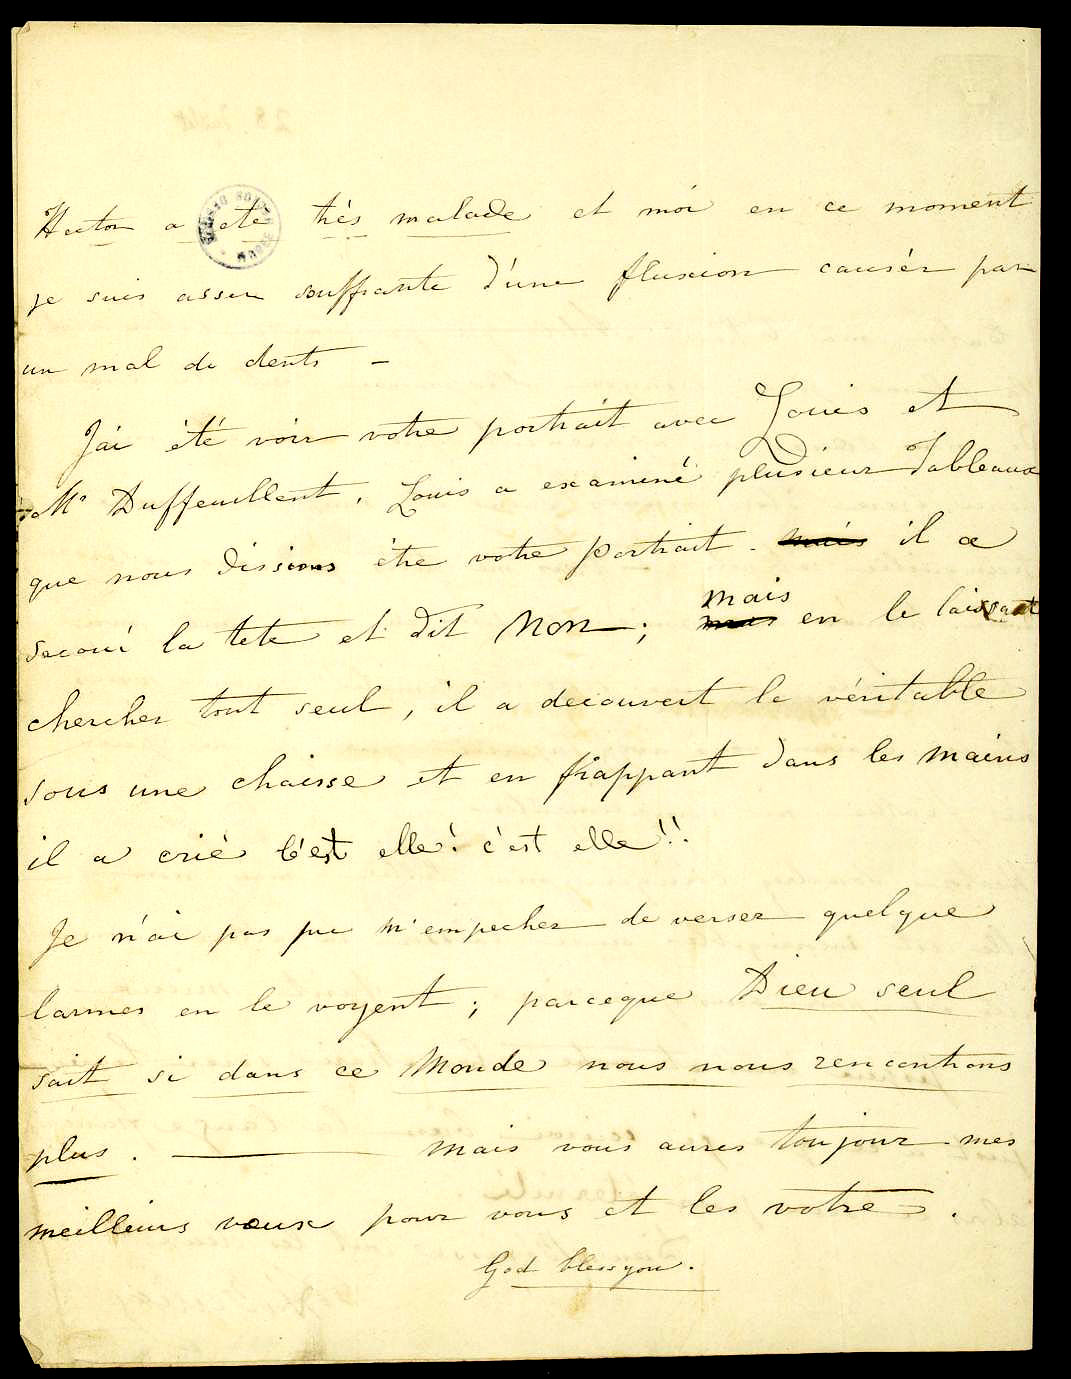 Hector a eté très malade et moi en ce moment
je suis assez souffrante d'une fluxion causér par
un mal de dents –
J'ai été voir votre portrait avec Louis et
Mr Duffeuillent. Louis a examiné plusieur Tableaux
que nous dissions être votre portrait. mais il a
secoué la tete et dit Non; mais en le laissant
chercher tout seul, il a decouvert le véritable
sous une chaisse et en frappant dans les mains
il a crié c'est elle! c'est elle!!
Je n'ai pas pu m'empecher de verser quelque
larmes en le voyent; parceque Dieu seul
sait si dans ce Monde nous nous rencontrons
plus. — mais vous aures toujour mes
meilleurs vœux pour vous et les votre.
God bless you.